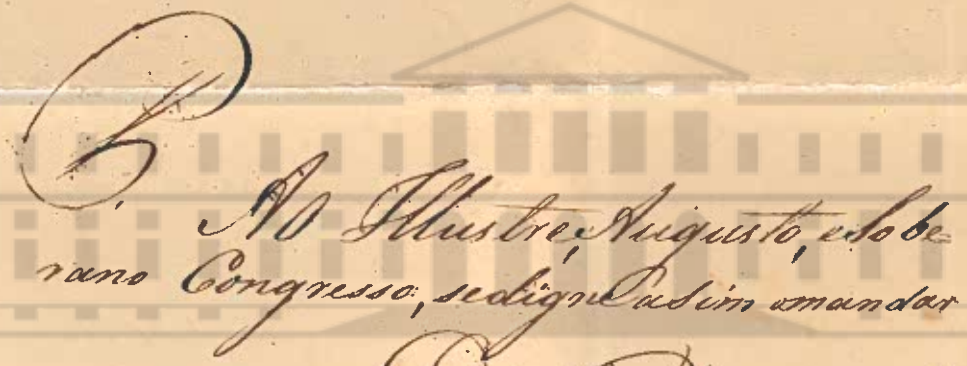 P.
Ao Illustre, Augusto, e Sobe-
rano Congresso, se digne asim omandar